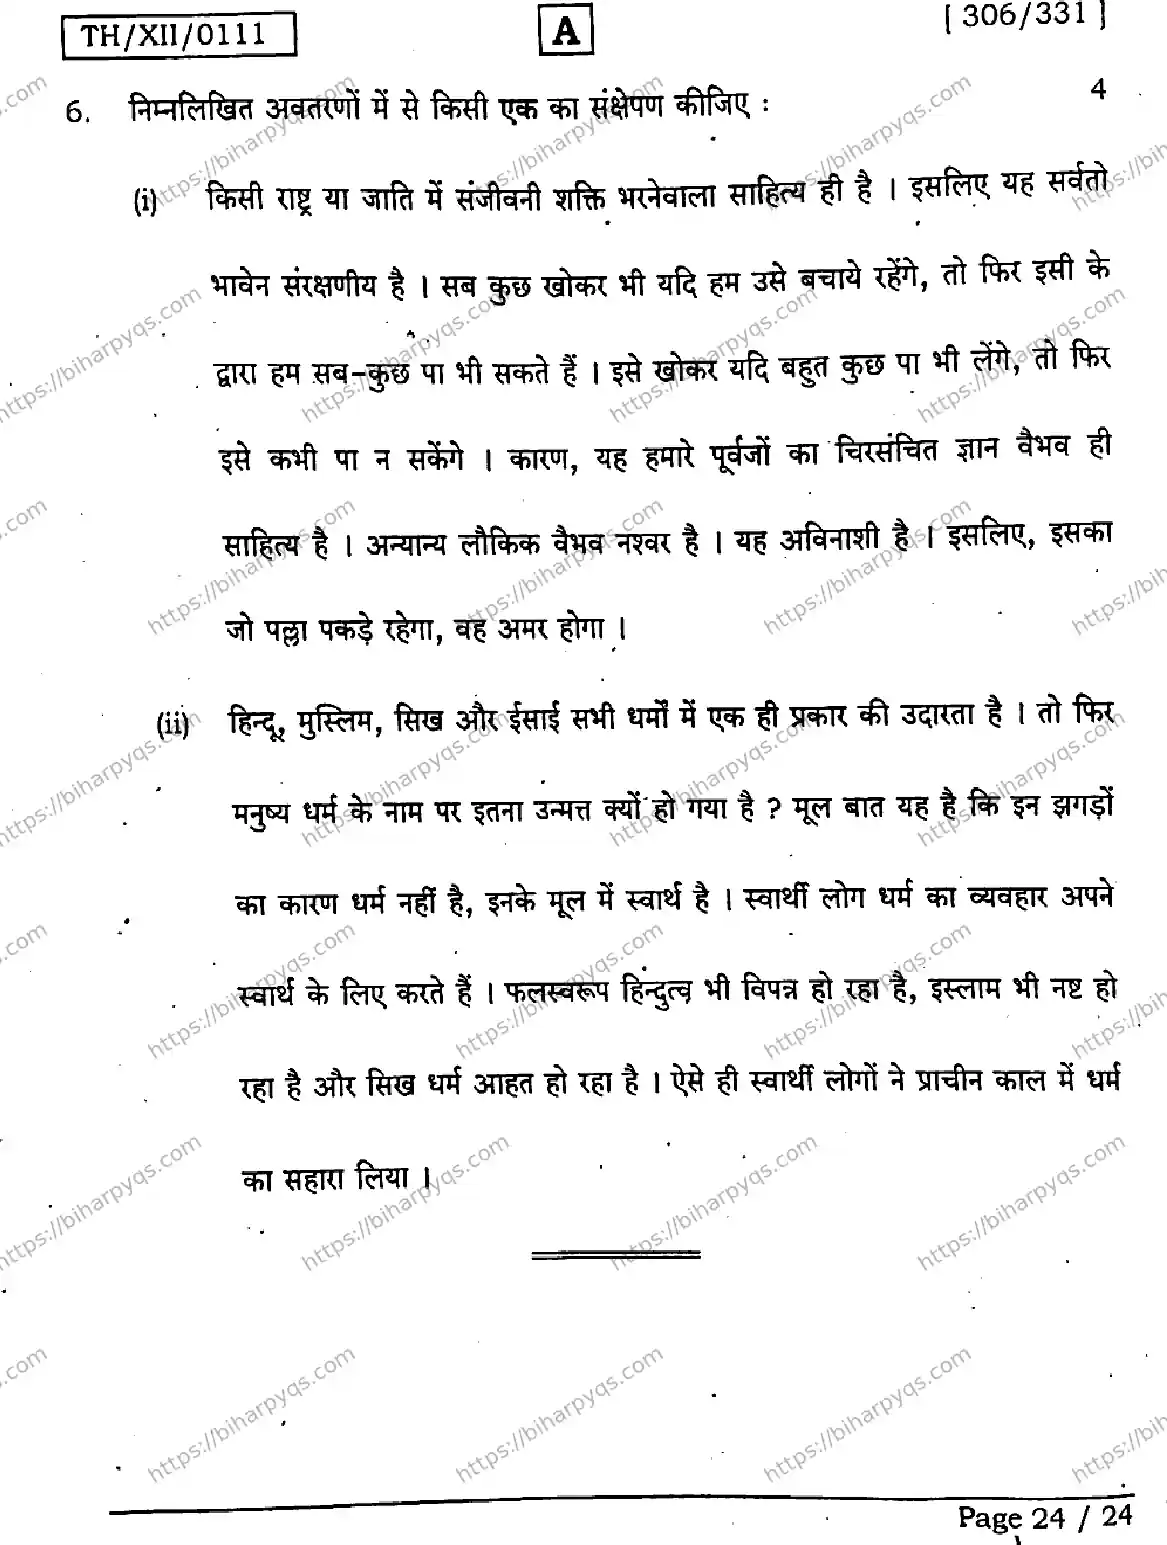 TH/XII/0111 A [ 306/331 ]
6. निम्नलिखित अवतरणों में से किसी एक का संक्षेपण कीजिए : 4
(i) किसी राष्ट्र या जाति में संजीवनी शक्ति भरनेवाला साहित्य ही है । इसलिए यह सर्वतो
भावेन संरक्षणीय है । सब कुछ खोकर भी यदि हम उसे बचाये रहेंगे, तो फिर इसी के
द्वारा हम सब-कुछ पा भी सकते हैं । इसे खोकर यदि बहुत कुछ पा भी लेंगे, तो फिर
इसे कभी पा न सकेंगे । कारण, यह हमारे पूर्वजों का चिरसंचित ज्ञान वैभव ही
साहित्य है । अन्यान्य लौकिक वैभव नश्वर है । यह अविनाशी है । इसलिए, इसका
जो पल्ला पकड़े रहेगा, वह अमर होगा ।
(ii) हिन्दू, मुस्लिम, सिख और ईसाई सभी धर्मों में एक ही प्रकार की उदारता है । तो फिर
मनुष्य धर्म के नाम पर इतना उन्मत्त क्यों हो गया है ? मूल बात यह है कि इन झगड़ों
का कारण धर्म नहीं है, इनके मूल में स्वार्थ है । स्वार्थी लोग धर्म का व्यवहार अपने
स्वार्थ के लिए करते हैं । फलस्वरूप हिंन्दुत्व भी विपन्न हो रहा है, इस्लाम भी नष्ट हो
रहा है और सिख धर्म आहत हो रहा है । ऐसे ही स्वार्थी लोगों ने प्राचीन काल में धर्म
का सहारा लिया ।
Page 24 / 24
https://biharpyqs.com